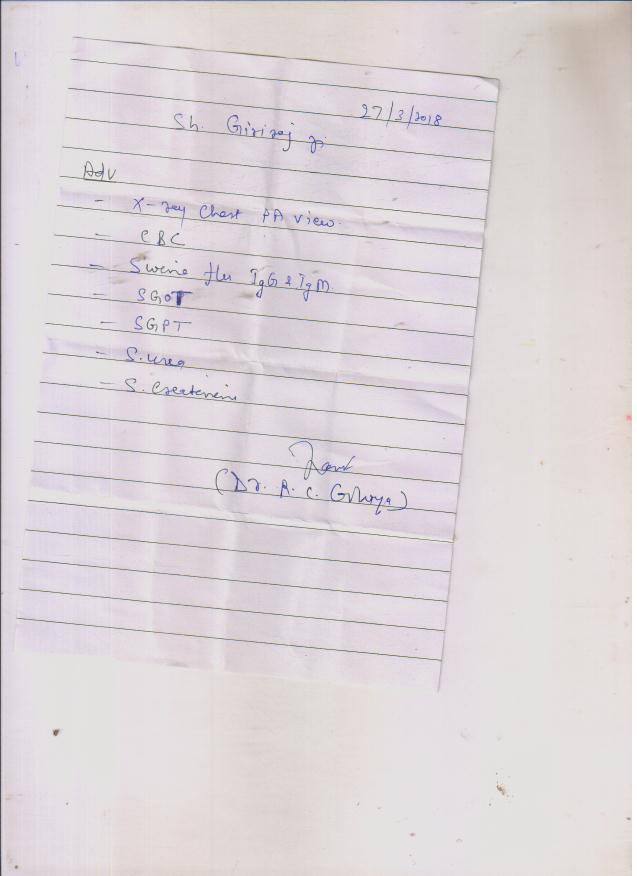 27/3/2018
Sh. Giriraj ji
Adv
- X-ray Chest PA view.
- CBC
- Swine flu IgG & IgM
- SGOT
- SGPT
- S. urea
- S. Creatinine
(Dr. R. C.